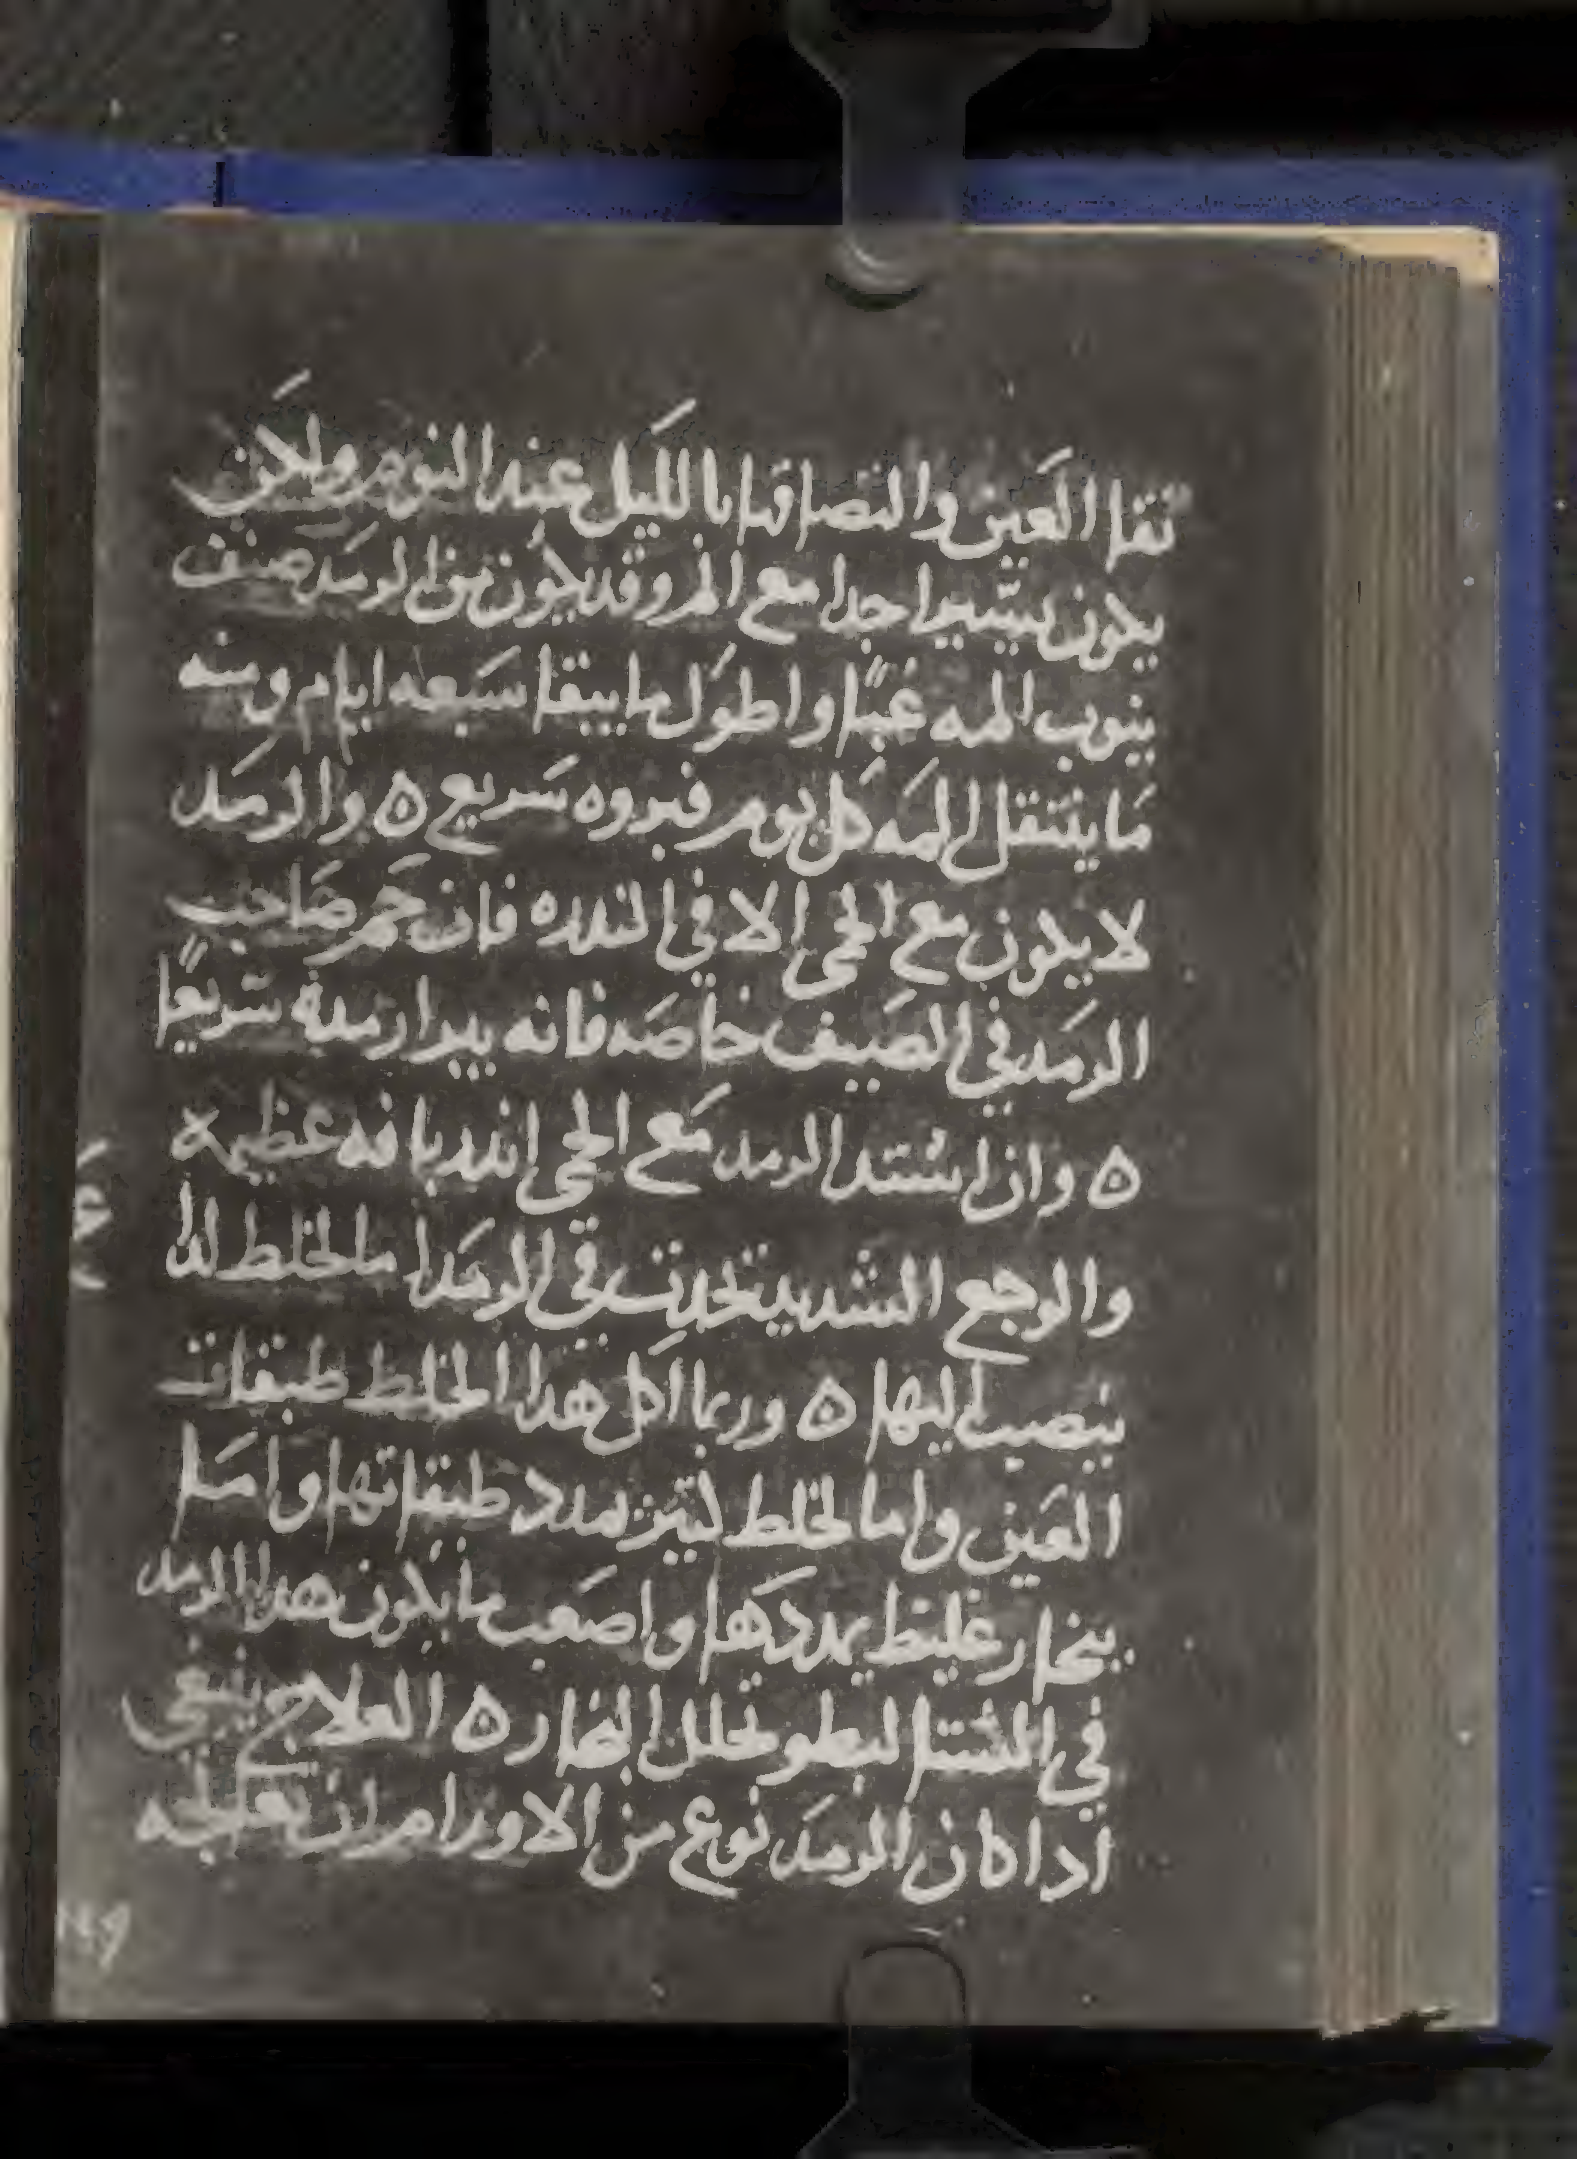 تقل العين والتصاقها بالليل عند النوم ولاكن
يكون يسيرا جدا مع المر وقد يكون من الرمد صنف
ينوب المه غبًا واطول ما يبقا سبعه ايام ومنه
ما ينتقل المه كل يوم فبروه سريع ٥ والرمد
لا يكون مع الحمى الا في الندره فان حم صاحب
الرمد في الصيف خاصه فانه يبرا رمده سريعًا
٥ وان اشتد الرمد مع الحمى انذر بافه عظيمه
والوجع الشديد يحدث في الرمد اما لخلط لذاع
ينصب اليها ٥ وربما اكل هذا الخلط طبقات
العين واما لخلط كثير مدد طبقاتها واما
بخار غليظ يمددها واصعب ما يكون هدا الرمد
في الشتا لبطو تحلل البخار ٥ العلاج ينبغي
اداكان الرمد نوع من الاورام ان نعالجه